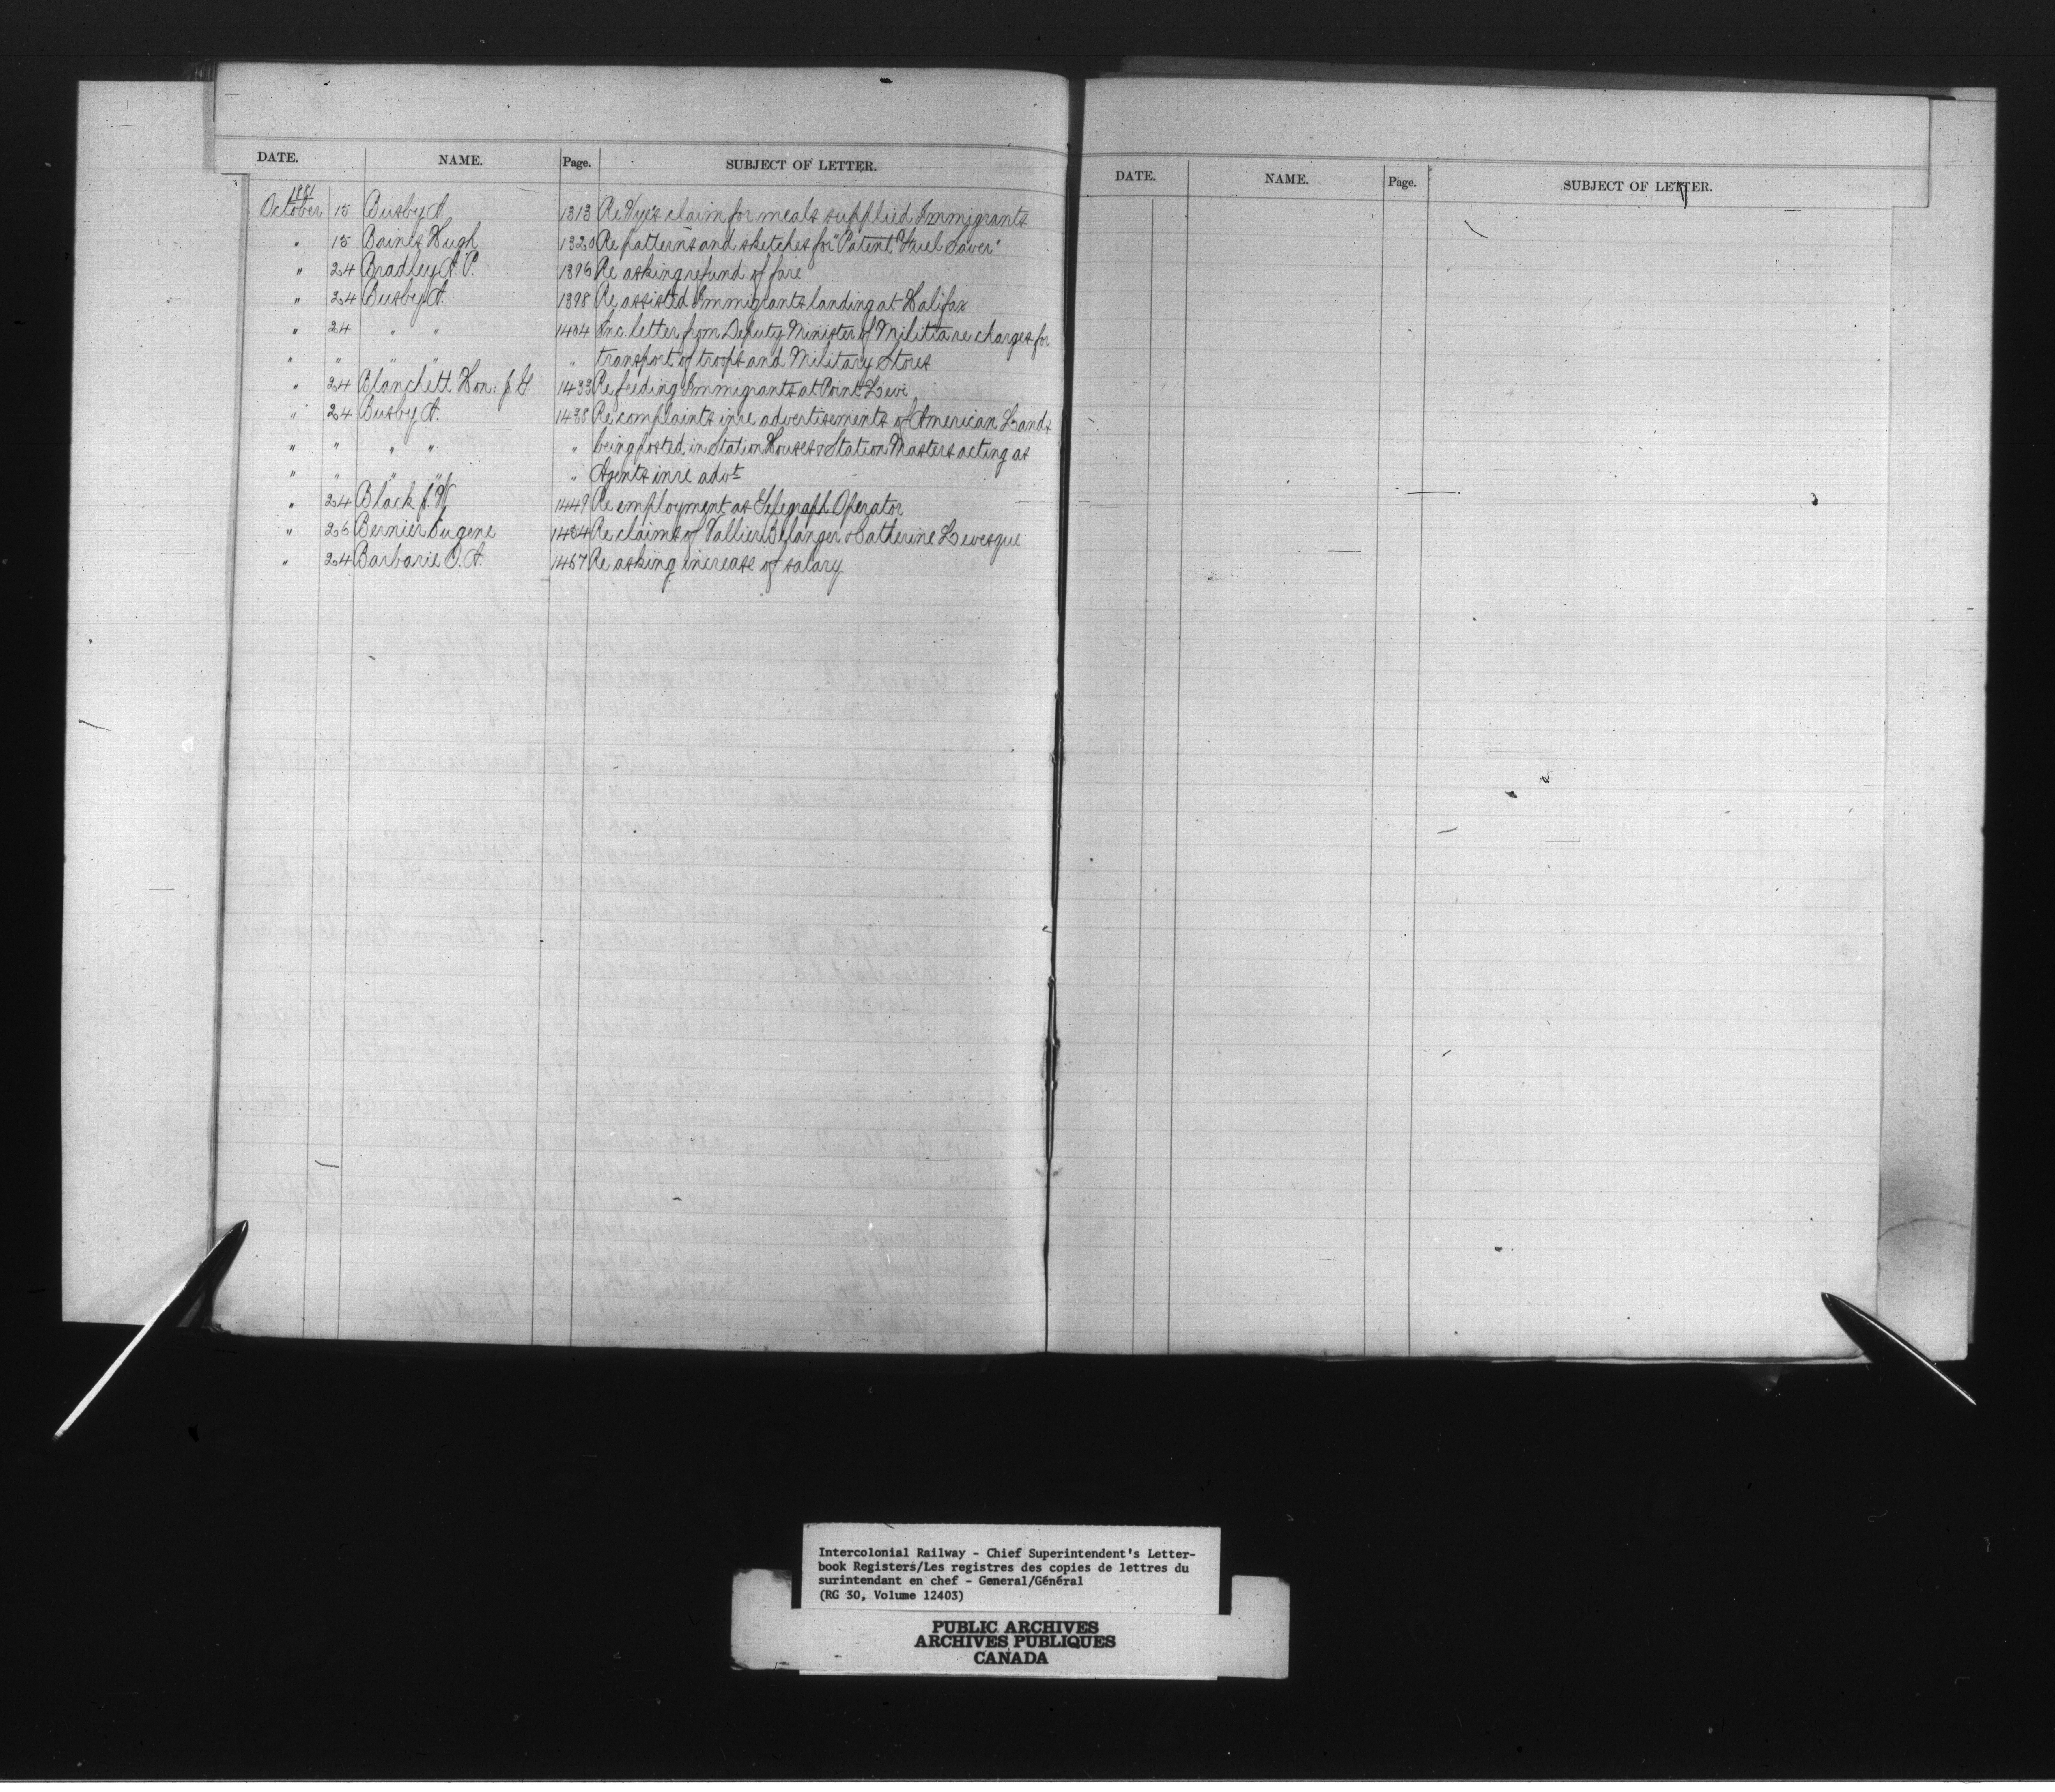 DATE. NAME. Page. SUBJECT OF LETTER.
1881
October 15 Busby A. 1313 Re Vye's claim for meals supplied Immigrants
" 15 Baines Hugh 1320 Re patterns and sketches for "Patent Fuel Saver"
" 24 Bradley A. P. 1396 Re asking refund of fare
" 24 Busby A. 1398 Re assisted Immigrants landing at Halifax
" 24 " " 1404 Inc. letter from Deputy Minister of Militia re charges for
" " " " " transport of troops and Military Stores
" 24 Blanchett Hon: J. G 1433 Re feeding Immigrants at Point Levi
" 24 Busby A. 1438 Re complaints inre advertisements of American Lands
" " " " " being posted in Station Houses & Station Masters acting as
" " " " " Agents inre advt
" 24 Black J. W 1449 Re employment as Telegraph Operator
" 26 Bernier Eugene 1484 Re claims of Vallier Belanger & Catherine Levesque
" 24 Barbarie O. A. 1457 Re asking increase of salary
DATE. NAME. Page. SUBJECT OF LETTER.
Intercolonial Railway - Chief Superintendent's Letter-
book Registers/Les registres des copies de lettres du
surintendant en chef - General/Général
(RG 30, Volume 12403)
PUBLIC ARCHIVES
ARCHIVES PUBLIQUES
CANADA